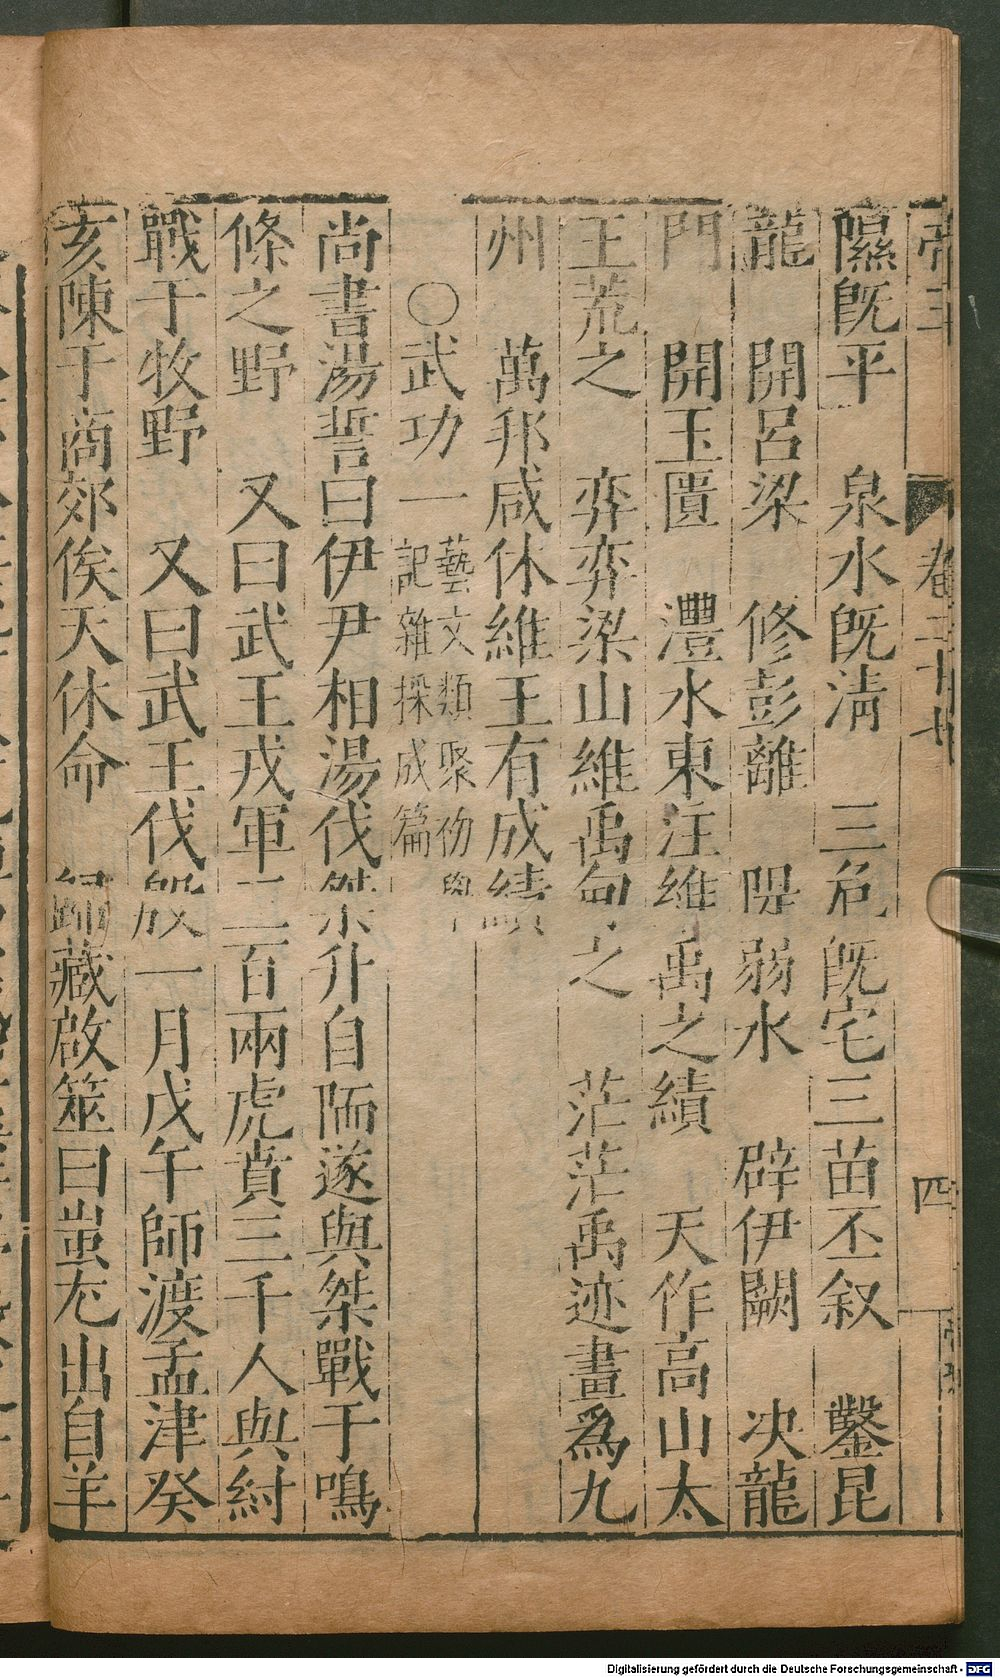 卷二十七
四
隰既平　泉水既淸　三危既宅三苗丕叙　鑿昆
龍　開呂梁　修彭離　阻弱水　辟伊闕　决龍
門　開玉匱　灃水東注維禹之績　天作高山太
王荒之　弈弈梁山維禹甸之　茫茫禹迹畫爲九
州　萬邦咸休維王有成績
○武功一 藝文類聚
記雜採成篇
尚書湯誓曰伊尹相湯伐桀升自陑遂與桀戰于鳴
條之野　又曰武王戎軍三百兩虎賁三千人與紂
戰于牧野　又曰武王伐殷一月戊午師渡孟津癸
亥陳于商郊俟天休命　歸藏啟筮曰蚩尤出自羊
Digitalisierung gefördert durch die Deutsche Forschungsgemeinschaft - DFG